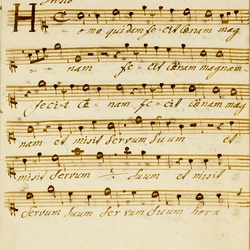 H
omo quidam fecit Cænam mag
nam fecit Cænam magnam
fecit Cænam fecit Cænam mag
nam et misit servum suum et
misit servum suum et misit
servum suum servum suum hora